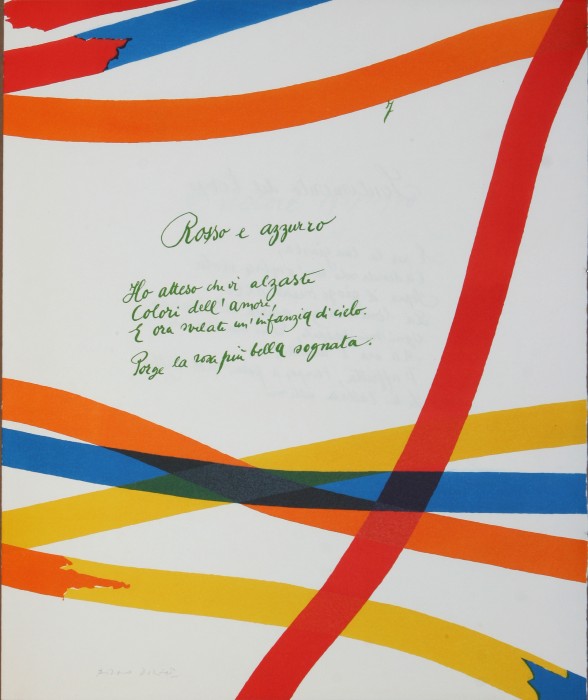 7
Rosso e azzurro
Ho atteso che vi alzaste
Colori dell'amore,
E ora svelate un'infanzia di cielo.
Porge la rosa più bella sognata.